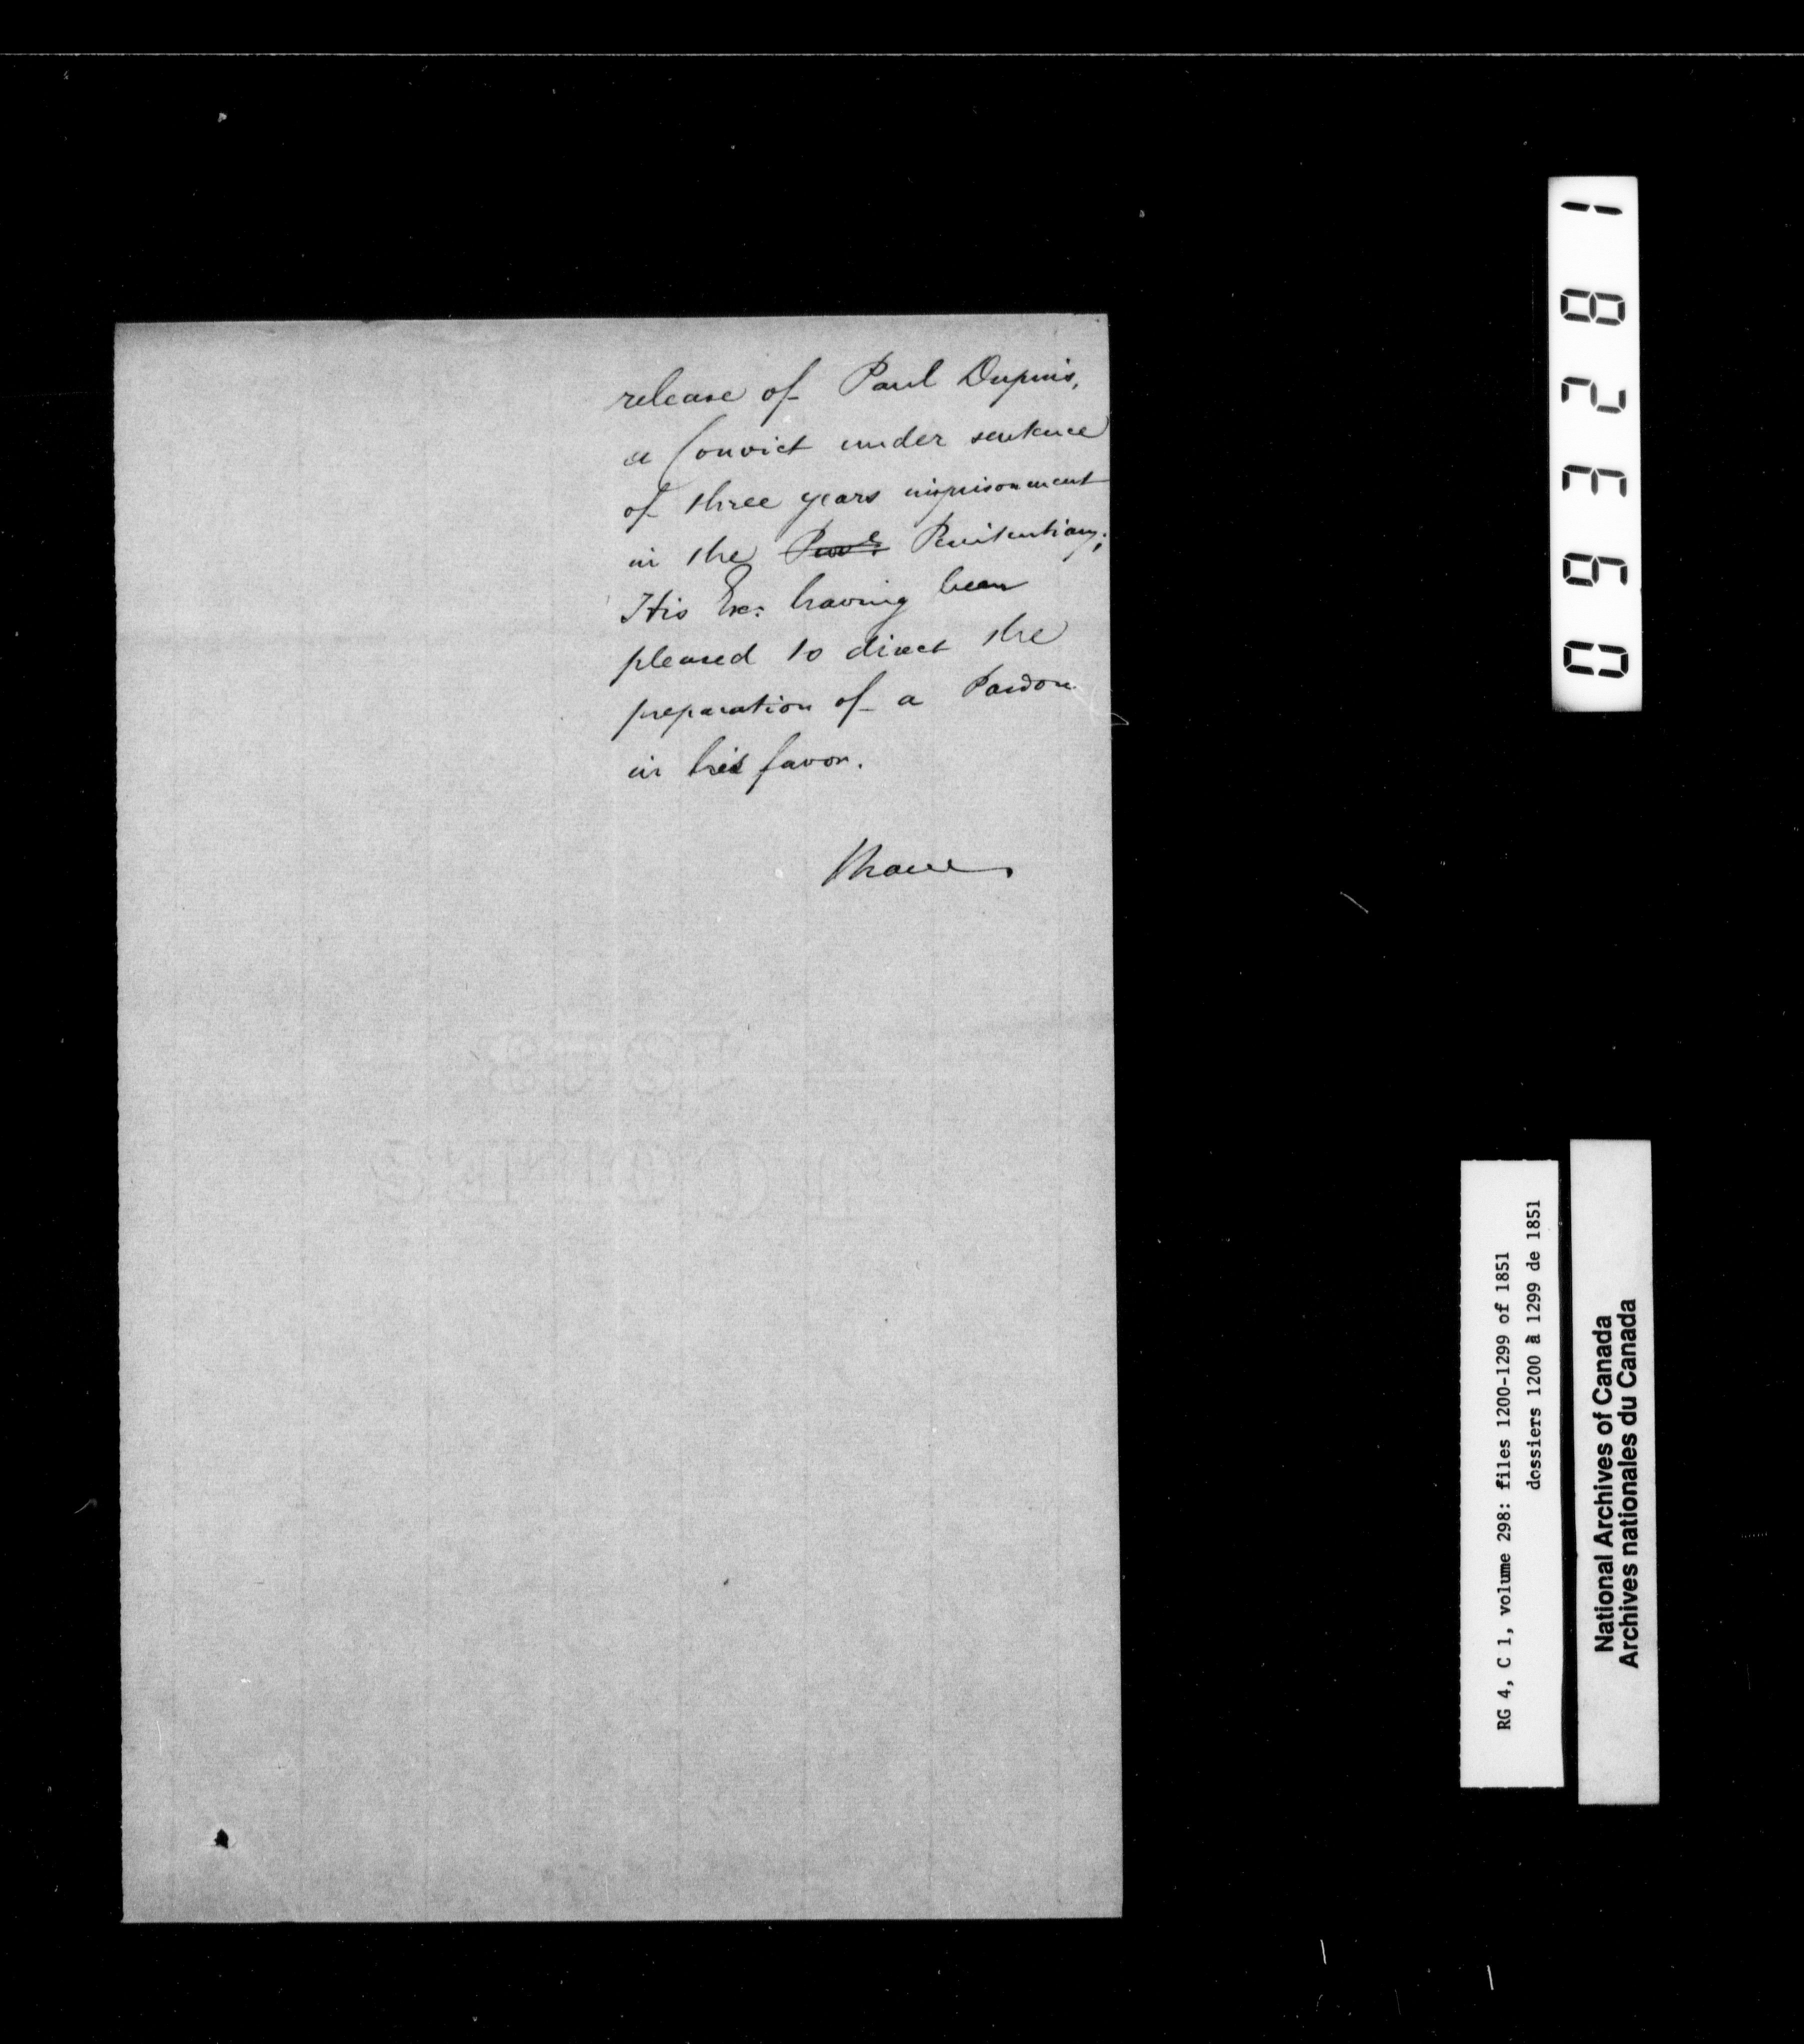 release of Paul Dupuis,
a Convict under sentence
of three years imprisonment
in the Penitentiary;
His Exc: having been
pleased to direct the
preparation of a Pardon
in his favor.
I have
093281
RG 4, C 1, volume 298: files 1200-1299 of 1851
dossiers 1200 à 1299 de 1851
National Archives of Canada
Archives nationales du Canada